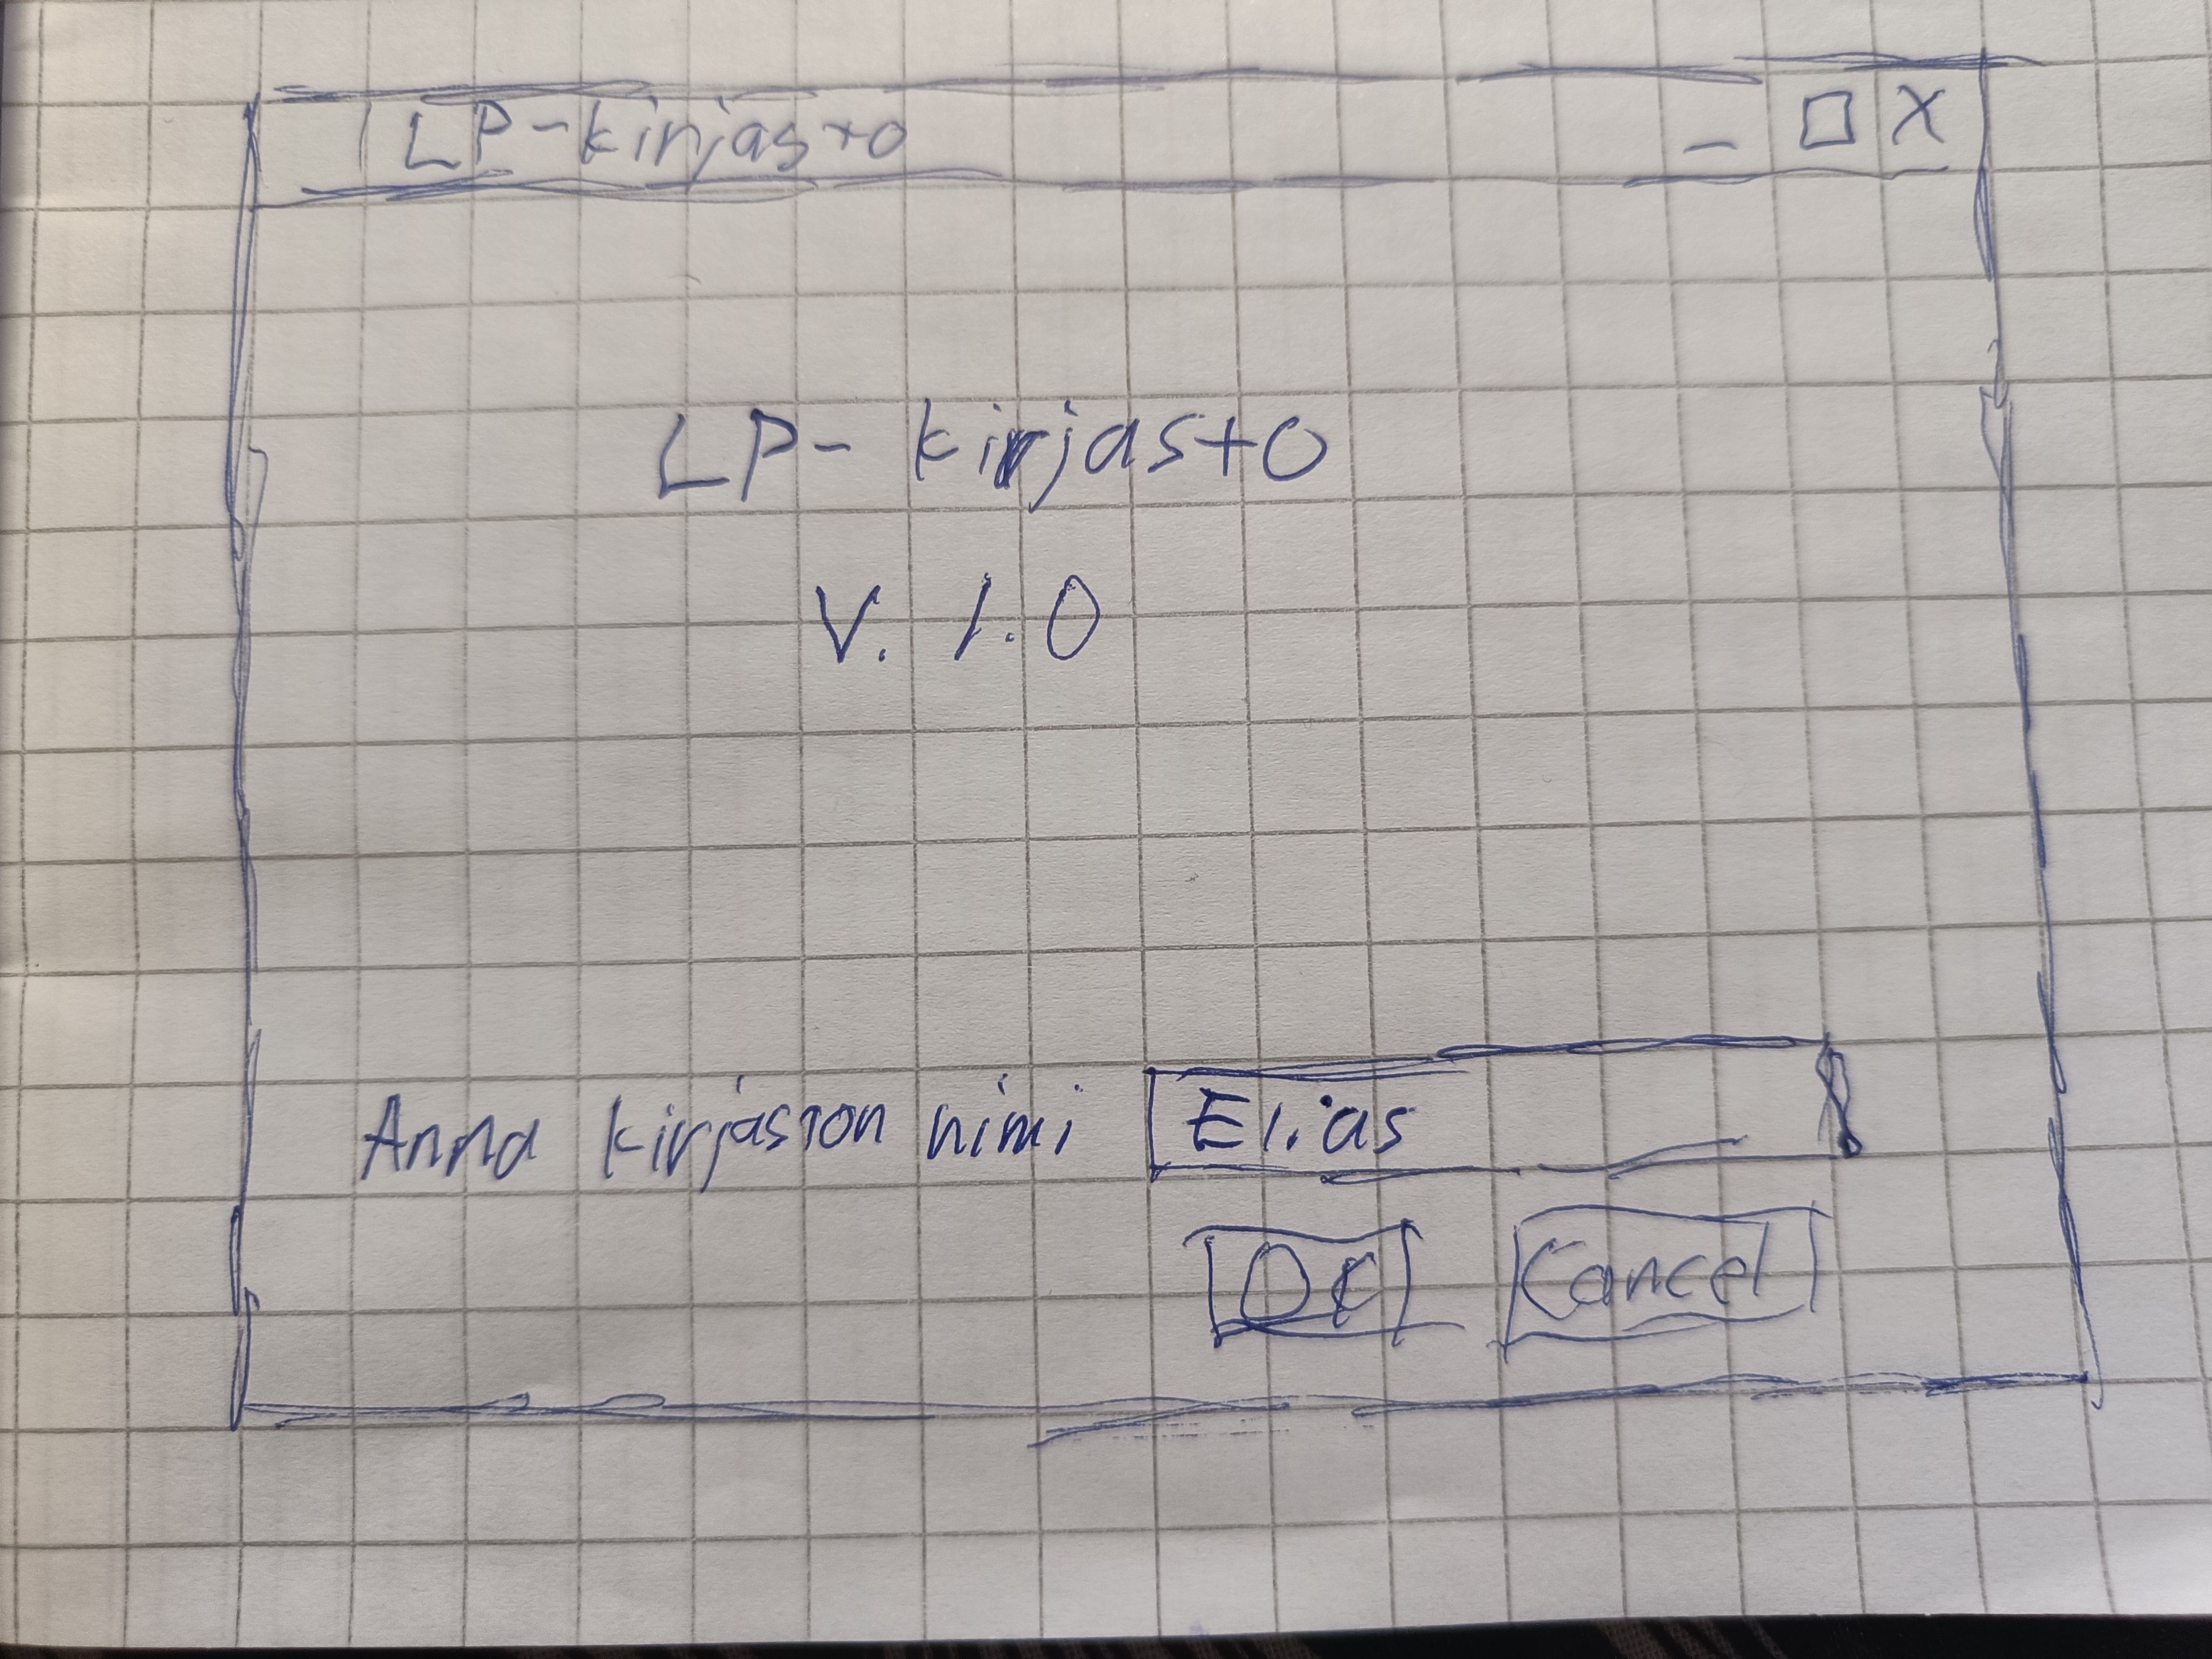 LP-kirjasto _ □ X
LP- kirjasto
V. 1.0
Anna kirjaston nimi Elias
OK Cancel